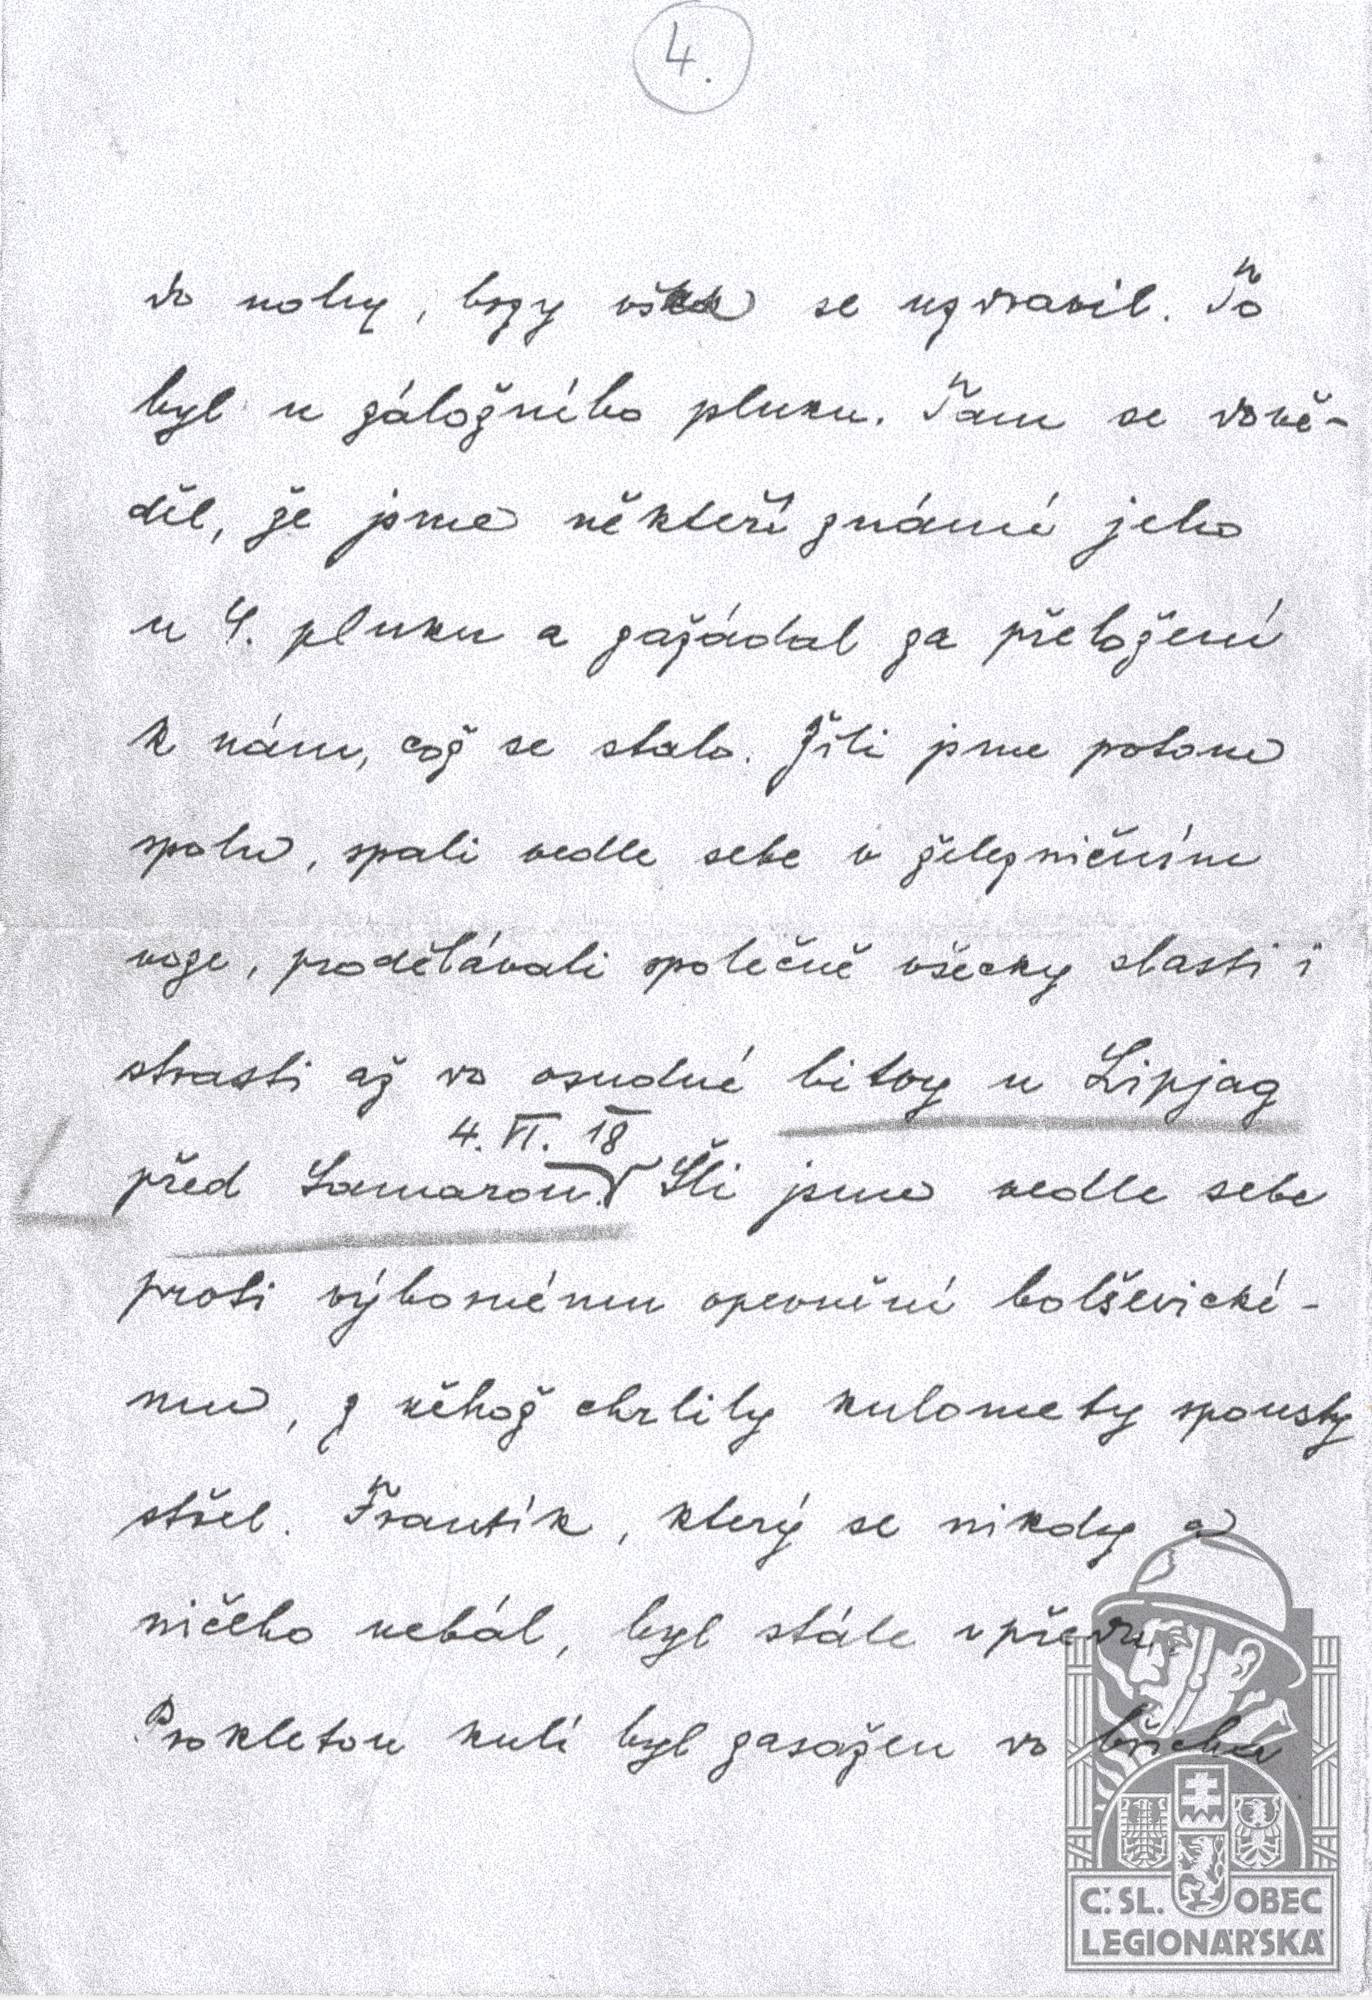 4.
do nohy, brzy však se uzdravil. To
byl u záložního pluku. Tam se dově-
děl, že jsme někteří známí jeho
u 4. pluku a zažádal za přeložení
k nám, což se stalo. Žili jsme potom
spolu, spali vedle sebe v železničním
voze, prodělávali společně všecky slasti i
strasti až do osudné bitvy u Lipjag
4. VI. 18
před Samarou. Šli jsme vedle sebe
proti výbornému opevnění bolševické-
mu, z něhož chrlily kulomety spousty
střel. Frantík, který se nikdy a
ničeho nebál, byl stále vpředu.
Prokletou kulí byl zasažen do břicha
Č. SL. OBEC
LEGIONÁŘSKÁ